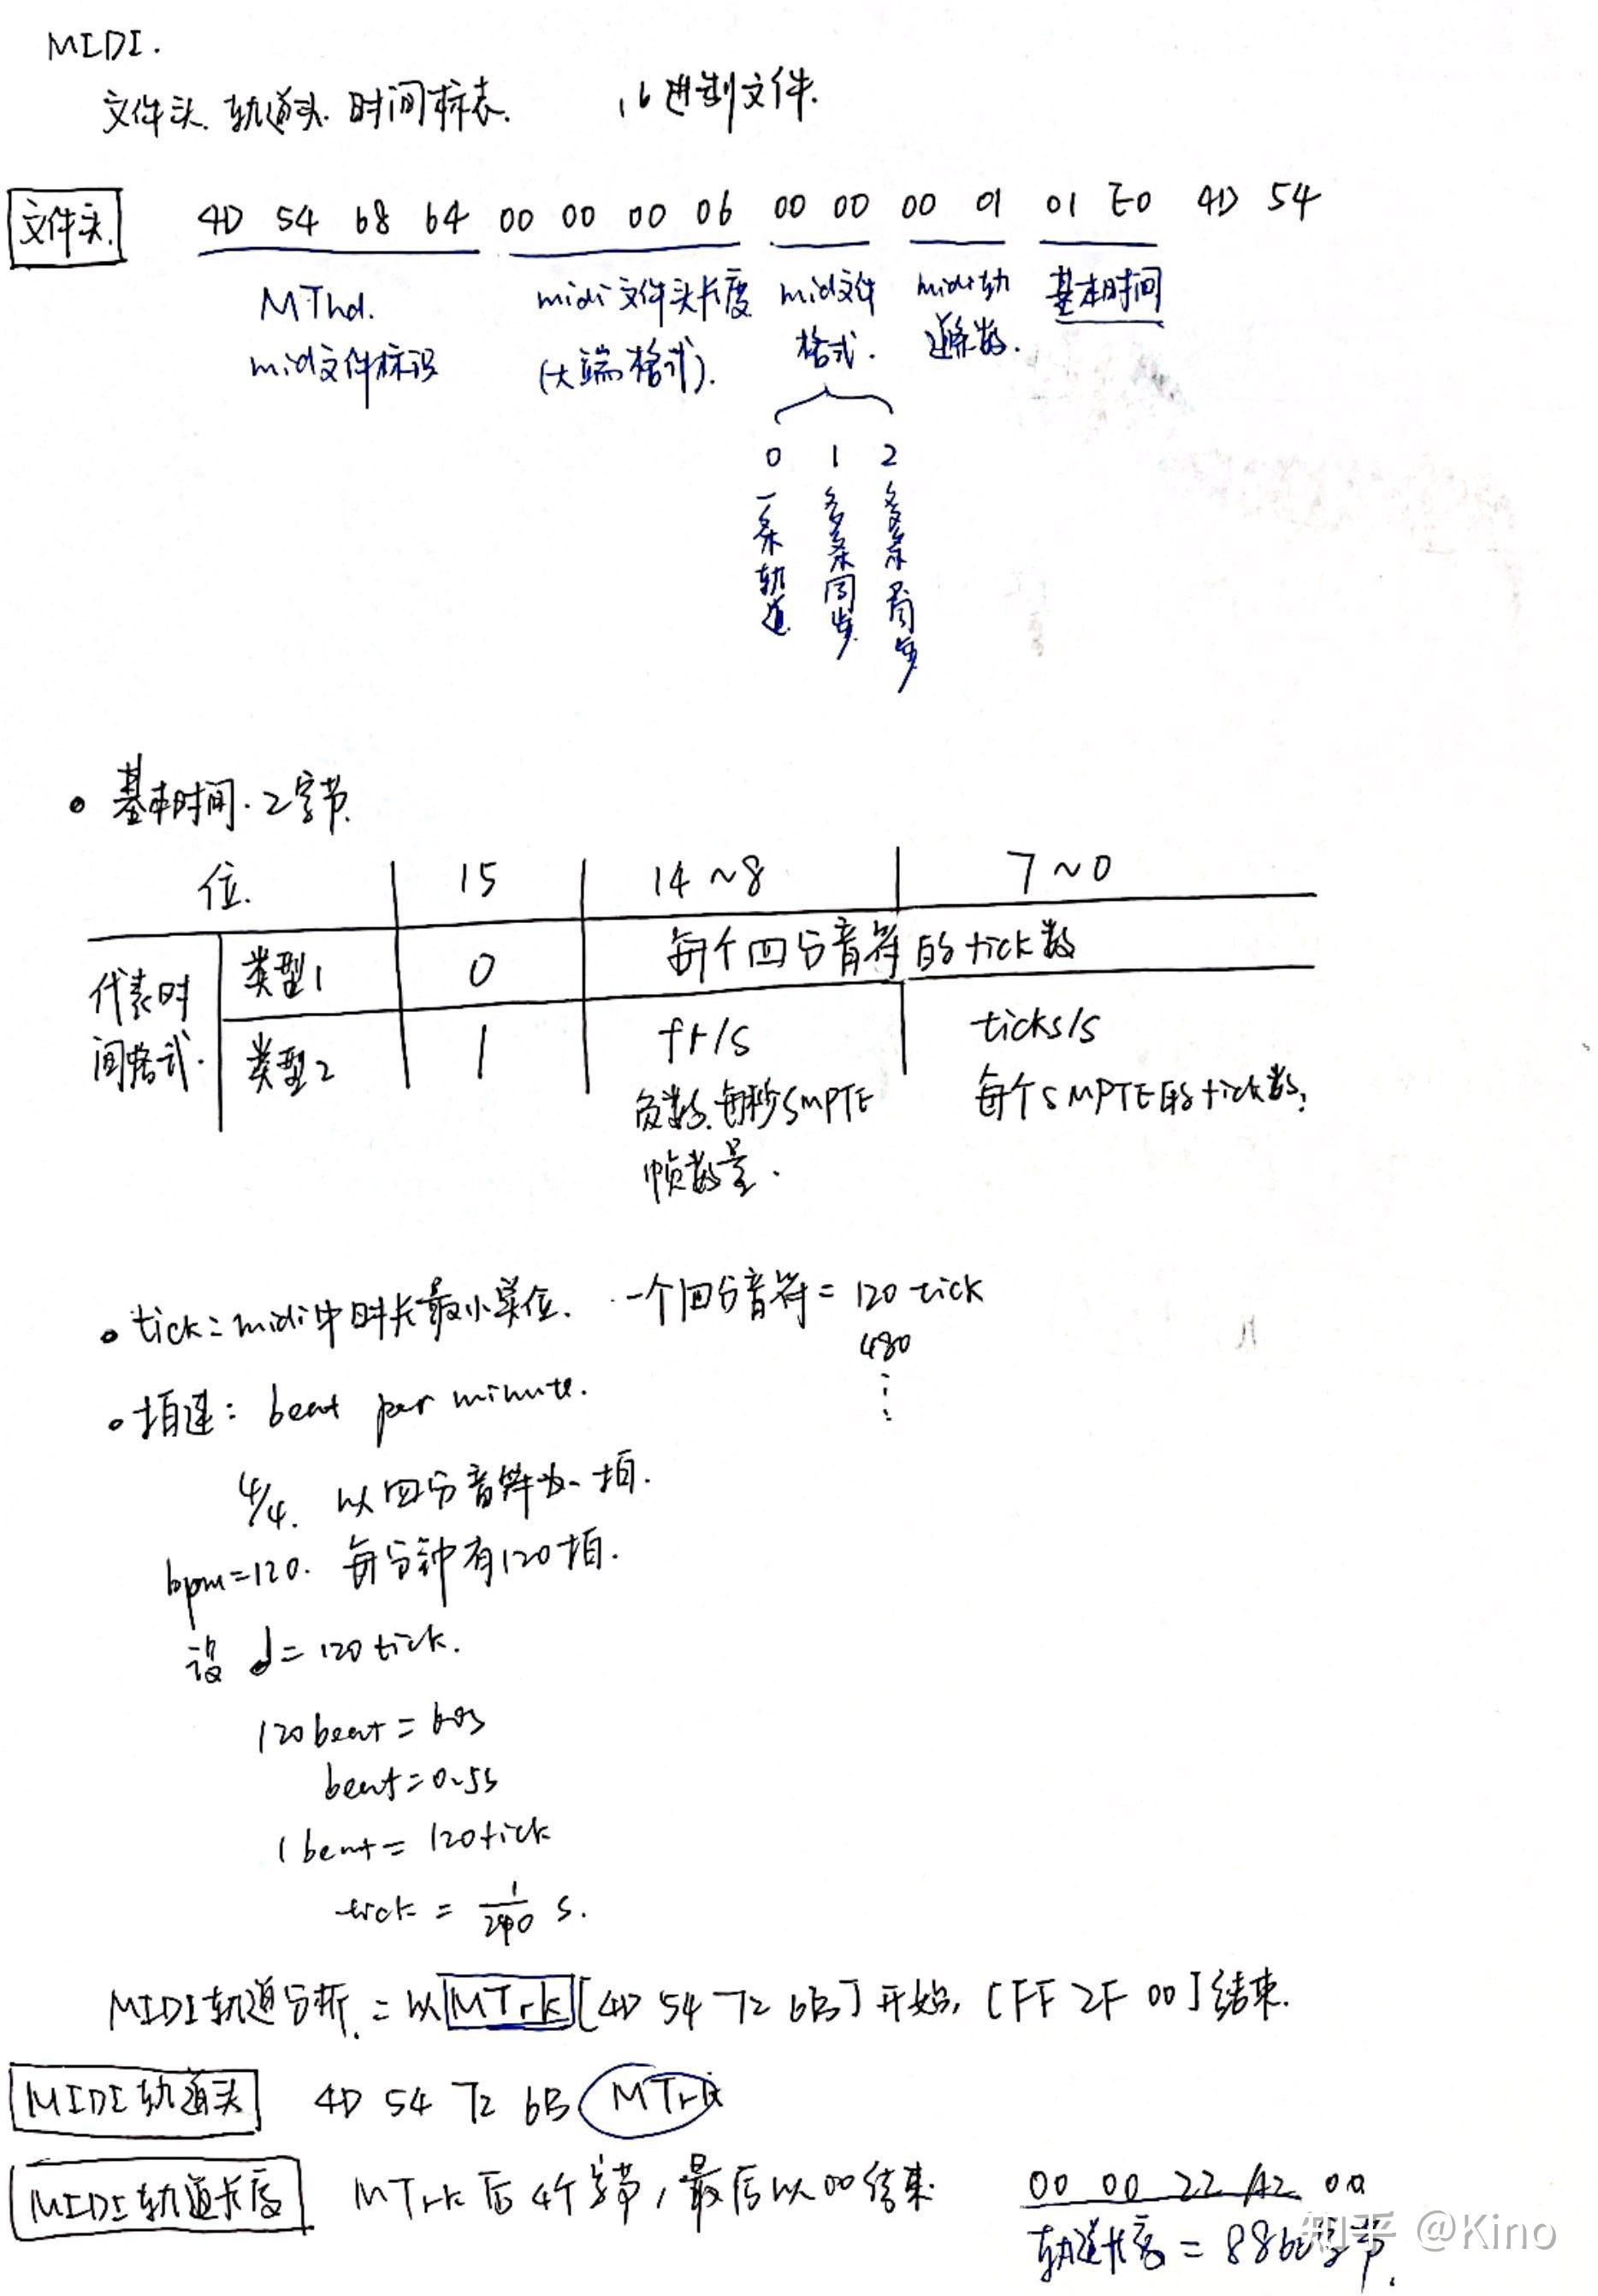 MIDI.
文件头. 轨道头. 时间标表. 16进制文件.
文件头. 4D 54 68 64 00 00 00 06 00 00 00 01 01 E0 4D 54
MThd. midi文件头长度 mid文件 midi轨 基本时间
mid文件标识 (大端格式). 格式. 道条数.
0 1 2
一条轨道 多条同步 多条
• 基本时间. 2字节.
位. 15 14~8 7~0
代表时间格式. 类型1 0 每个四分音符的tick数
类型2 1 fr/s ticks/s
负数.每秒SMPTE 每个SMPTE的tick数;
帧数量.
• tick: midi中时长最小单位. 一个四分音符= 120 tick
480
⋮
• 拍速: beat per minute.
4/4. 以四分音符为一拍.
bpm=120. 每分钟有120拍.
设 ♩=120 tick.
120beat=60s
beat=0.5s
1 beat= 120tick
tick = 1/240 s.
MIDI轨道分析.= 以MTrk[4D 54 72 6B]开始, [FF 2F 00]结束.
MIDI轨道头 4D 54 72 6B MTrk
MIDI轨道长度 MTrk后4个字节,最后以00结束. 00 00 22 A2 00
轨道长度=8866字节.
知乎 @Kino